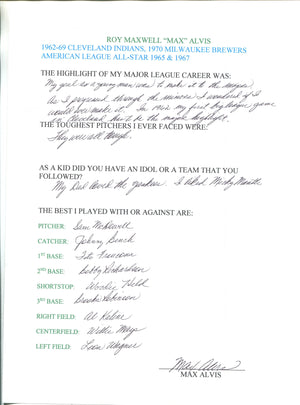 ROY MAXWELL "MAX" ALVIS
1962-69 CLEVELAND INDIANS, 1970 MILWAUKEE BREWERS
AMERICAN LEAGUE ALL-STAR 1965 & 1967
THE HIGHLIGHT OF MY MAJOR LEAGUE CAREER WAS:
My goal as a young man was to make it to the majors.
As I progressed through the minors I wondered if I
would ever make it. In 1962 my first big league game
in Cleveland has to be the major highlight.
THE TOUGHEST PITCHERS I EVER FACED WERE:
They were all tough.
AS A KID DID YOU HAVE AN IDOL OR A TEAM THAT YOU
FOLLOWED?
My Dad loved the Yankees. I liked Mickey Mantle
THE BEST I PLAYED WITH OR AGAINST ARE:
PITCHER: Sam McDowell
CATCHER: Johnny Bench
1ST BASE: Tito Francona
2ND BASE: Bobby Richardson
SHORTSTOP: Woodie Held
3RD BASE: Brooks Robinson
RIGHT FIELD: Al Kaline
CENTERFIELD: Willie Mays
LEFT FIELD: Leon Wagner
Max Alvis
MAX ALVIS